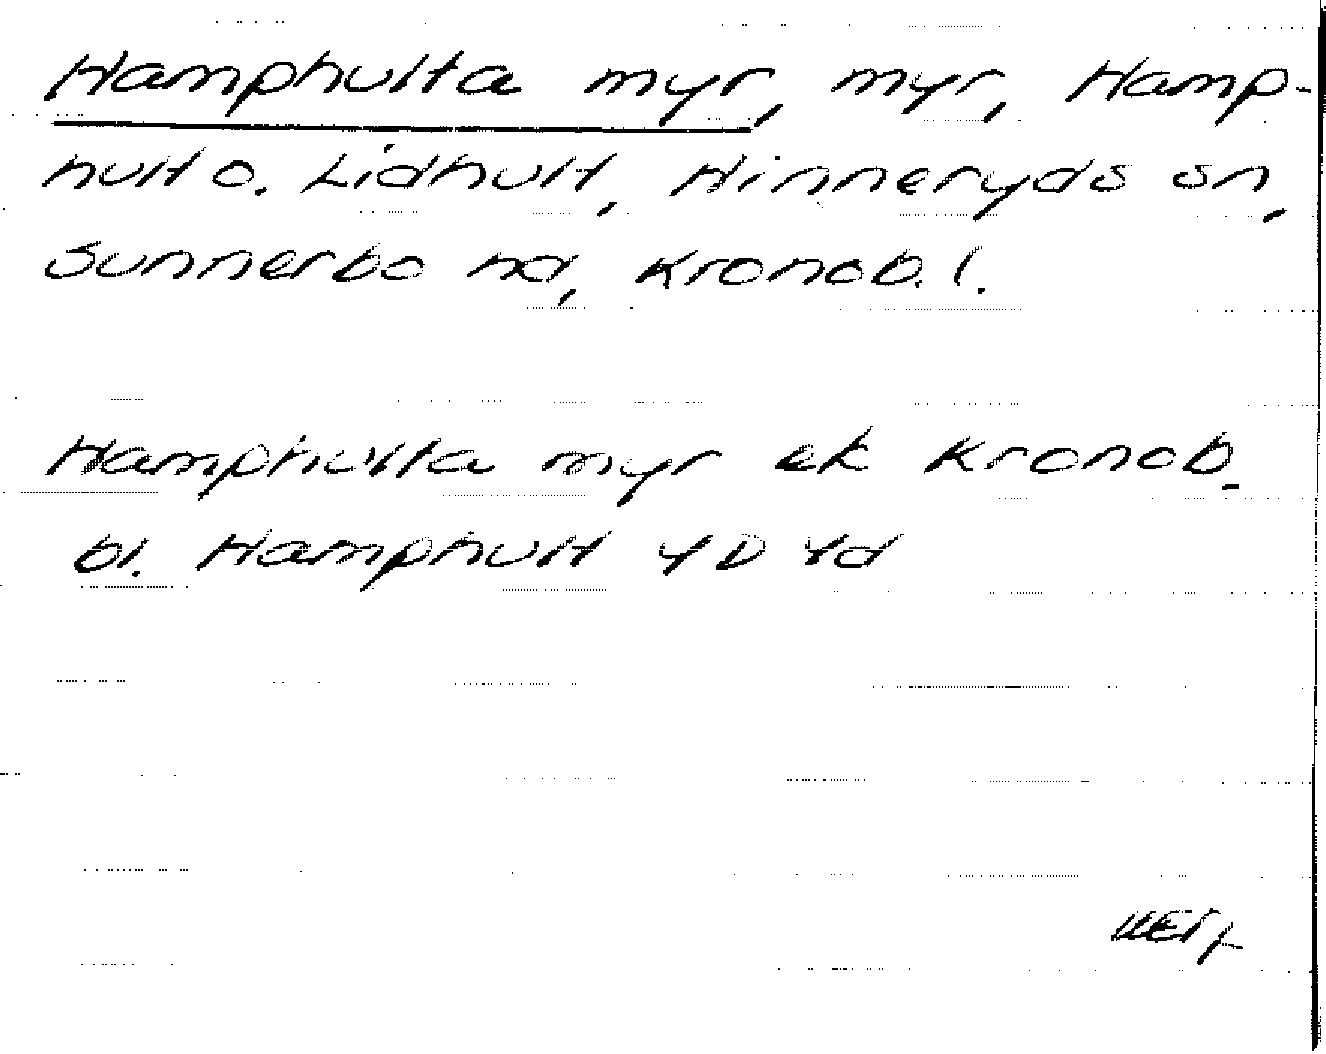 Hamphulta myr, myr, Hamp-
hult o. Lidhult, Hinneryds sn,
Sunnerbo hd, Kronob. l.
Hamphulta myr ek Kronob.
bl. Hamphult 4D 4d